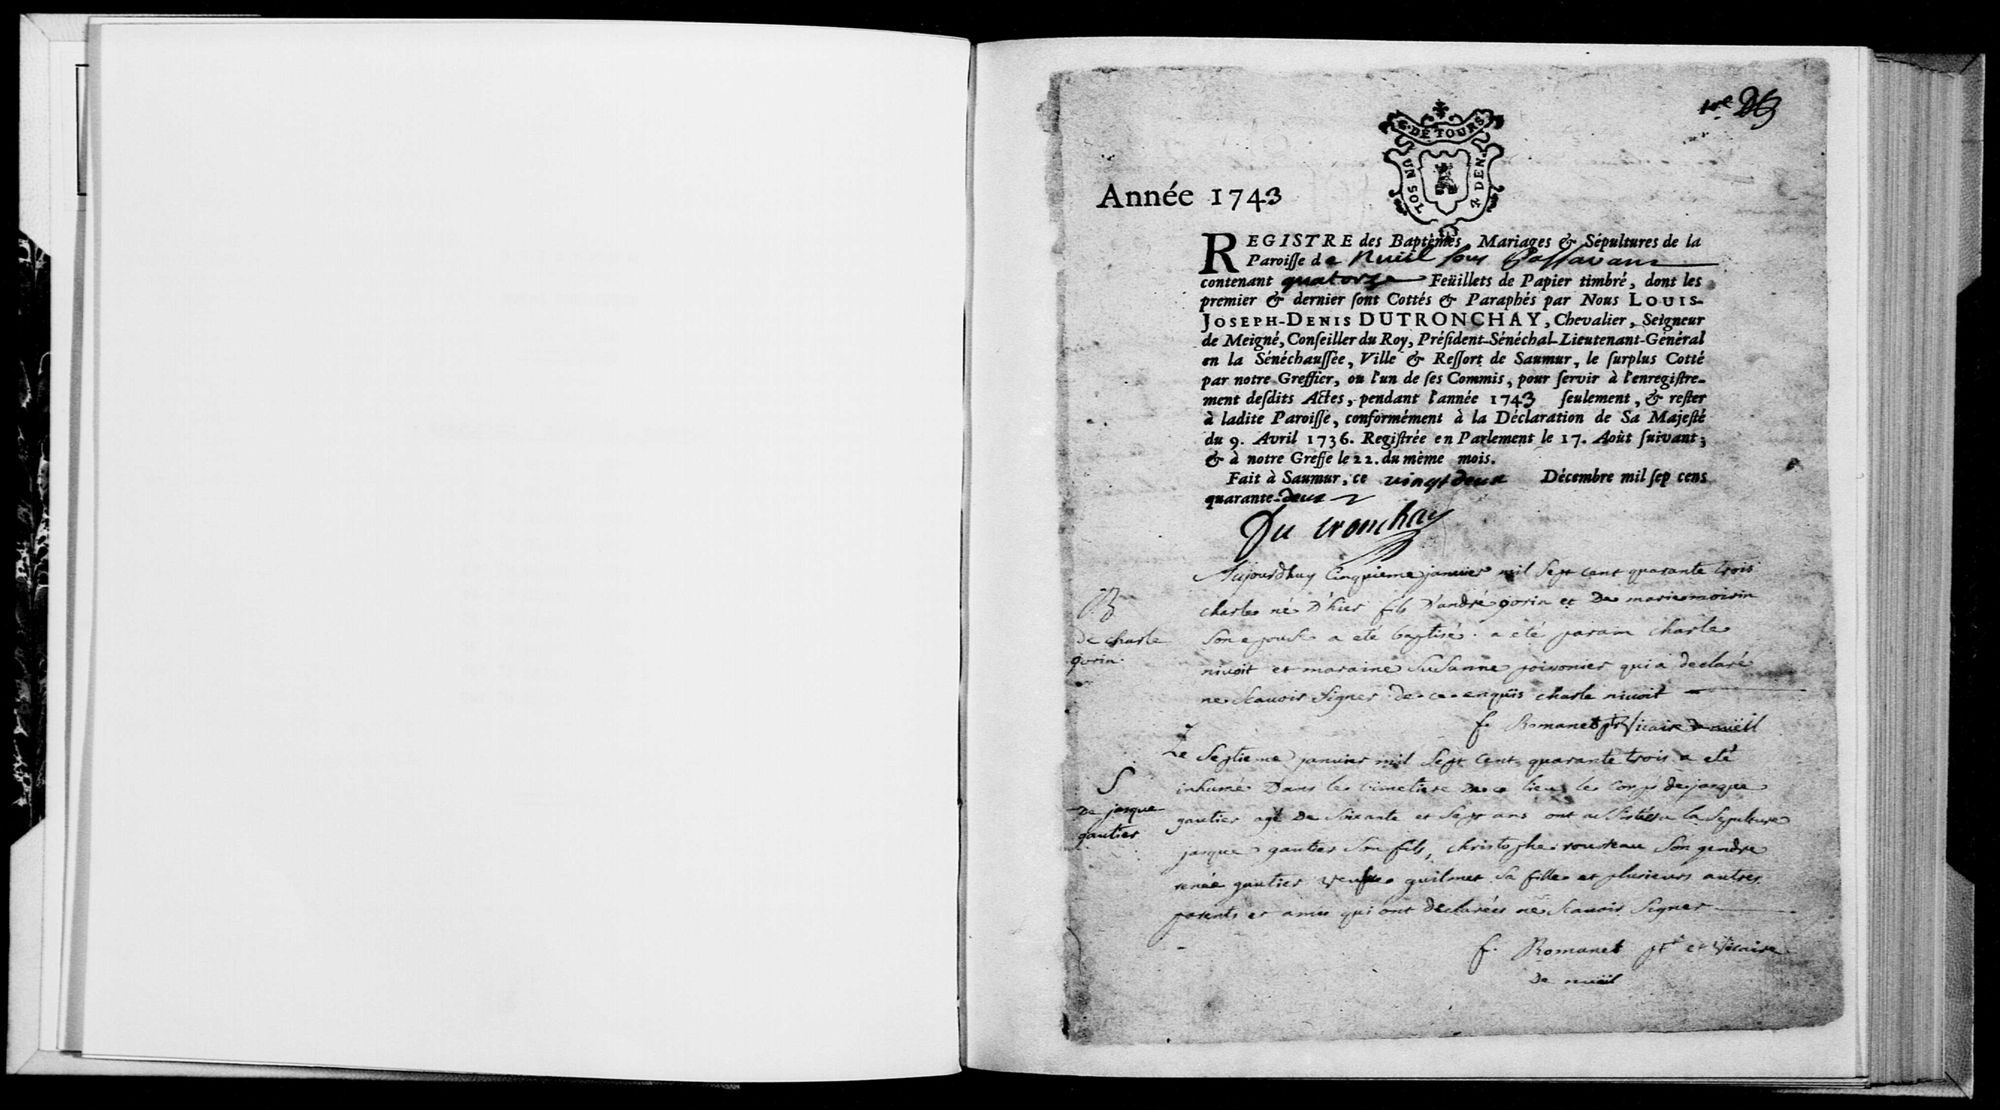 1re
G. DE TOURS
UN SOL
& DEN
Année 1743
REGISTRE des Baptêmes, Mariages & Sépultures de la
Paroisse de Nueil sous Passavant
contenant quatorze Feüillets de Papier timbré, dont les
premier & dernier sont Cottés & Paraphés par Nous LOUIS-
JOSEPH-DENIS DUTRONCHAY, Chevalier, Seigneur
de Meigné, Conseiller du Roy, Président-Sénéchal-Lieutenant-Général
en la Sénéchaussée, Ville & Ressort de Saumur, le surplus Cotté
par notre Greffier, ou l'un de ses Commis, pour servir à l'enregistre-
ment desdits Actes, pendant l'année 1743 seulement, & rester
à ladite Paroisse, conformément à la Déclaration de Sa Majesté
du 9. Avril 1736. Registrée en Parlement le 17. Août suivant;
& à notre Greffe le 22. du même mois.
Fait à Saumur, ce vingt deux Décembre mil sep cens
quarante-deux
Du tronchay
B
de charle
gorin
Aujourdhuy Cinquieme janvier mil sept cent quarante trois
charle né D'hier fils D'andré gorin et De marie moirin
son epouse a eté baptisé. a eté parain charle
nivoit et maraine Susanne poivonier qui a declaré
ne scavoir signer de ce enquis charle nivoit
f. Romanet ptr Vicaire De nuëil
S
De jasque
gautier
Le septieme janvier mil sept cent quarante trois a eté
inhumé Dans le cimetiere De ce lieu le corps de jasque
gautier agé De soixante et sept ans ont assistés a la sepulture
jasque gautier son fils, christophe rousteau son gendre
renée gautier veufue guilmet sa fille et plusieurs autres
parents et amis qui ont declarés ne scavoir signer
f. Romanet ptr et Vicaire
De nuëil